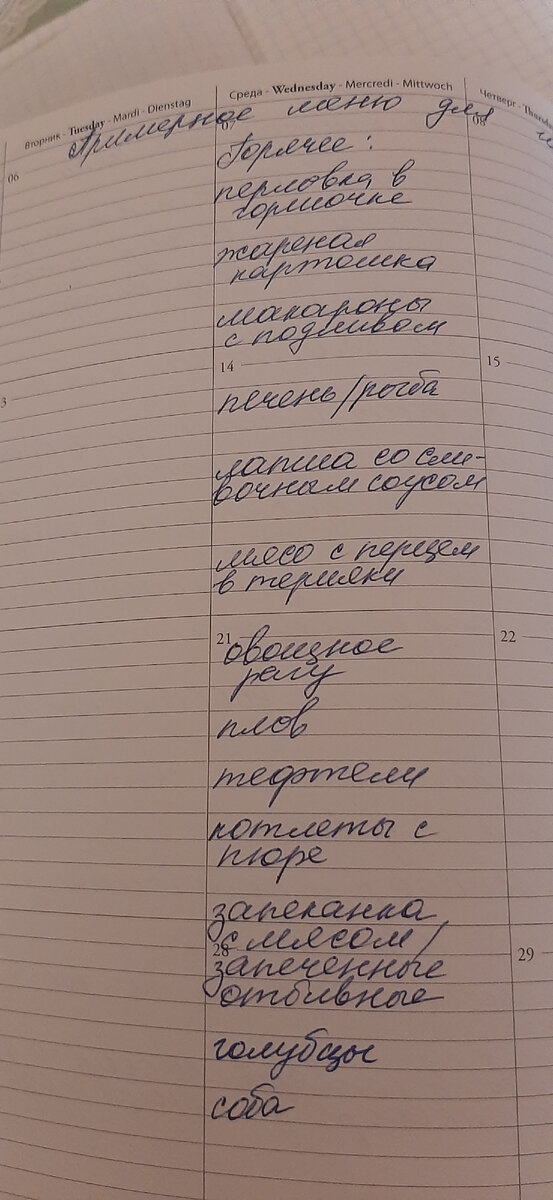 Вторник - Tuesday - Mardi - Dienstag
Среда - Wednesday - Mercredi - Mittwoch
Четверг -
Примерное меню для
06
07
08
Горячее:
перловка в
горшочке
жареная
картошка
макароны
с подливом
3
14
15
печень/рыба
лапша со сли-
вочным соусом
мясо с перцем
в терияки
21
22
овощное
рагу
плов
тефтели
котлеты с
пюре
запеканка
с мясом/
28
29
запеченные
отбивные
голубцы
соба